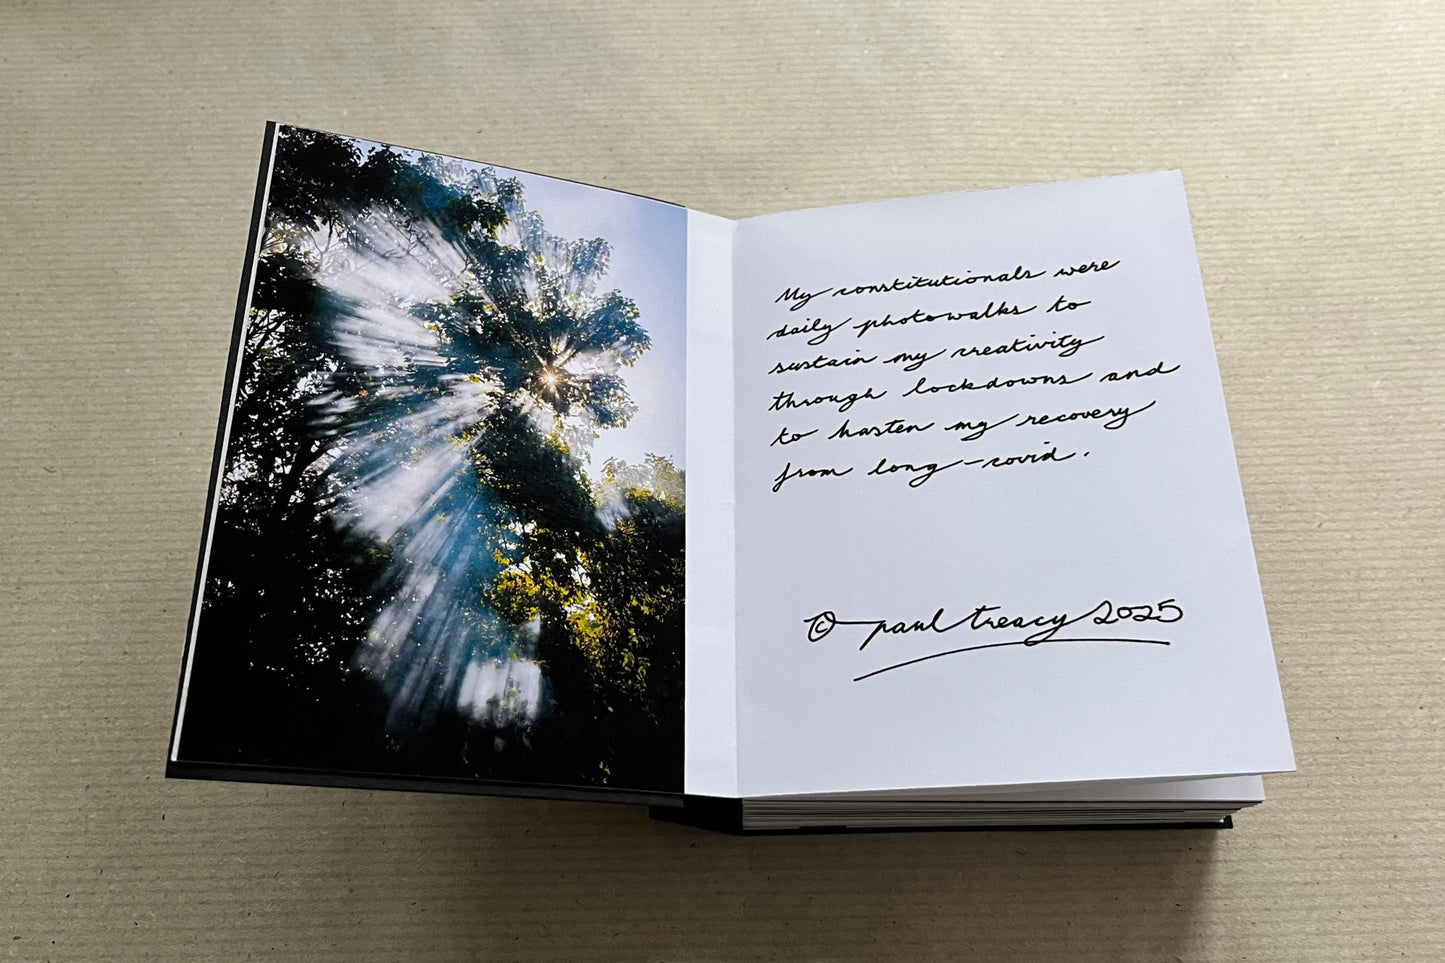 My constitutionals were
daily photowalks to
sustain my creativity
through lockdowns and
to hasten my recovery
from long-covid.
© paul treacy 2025